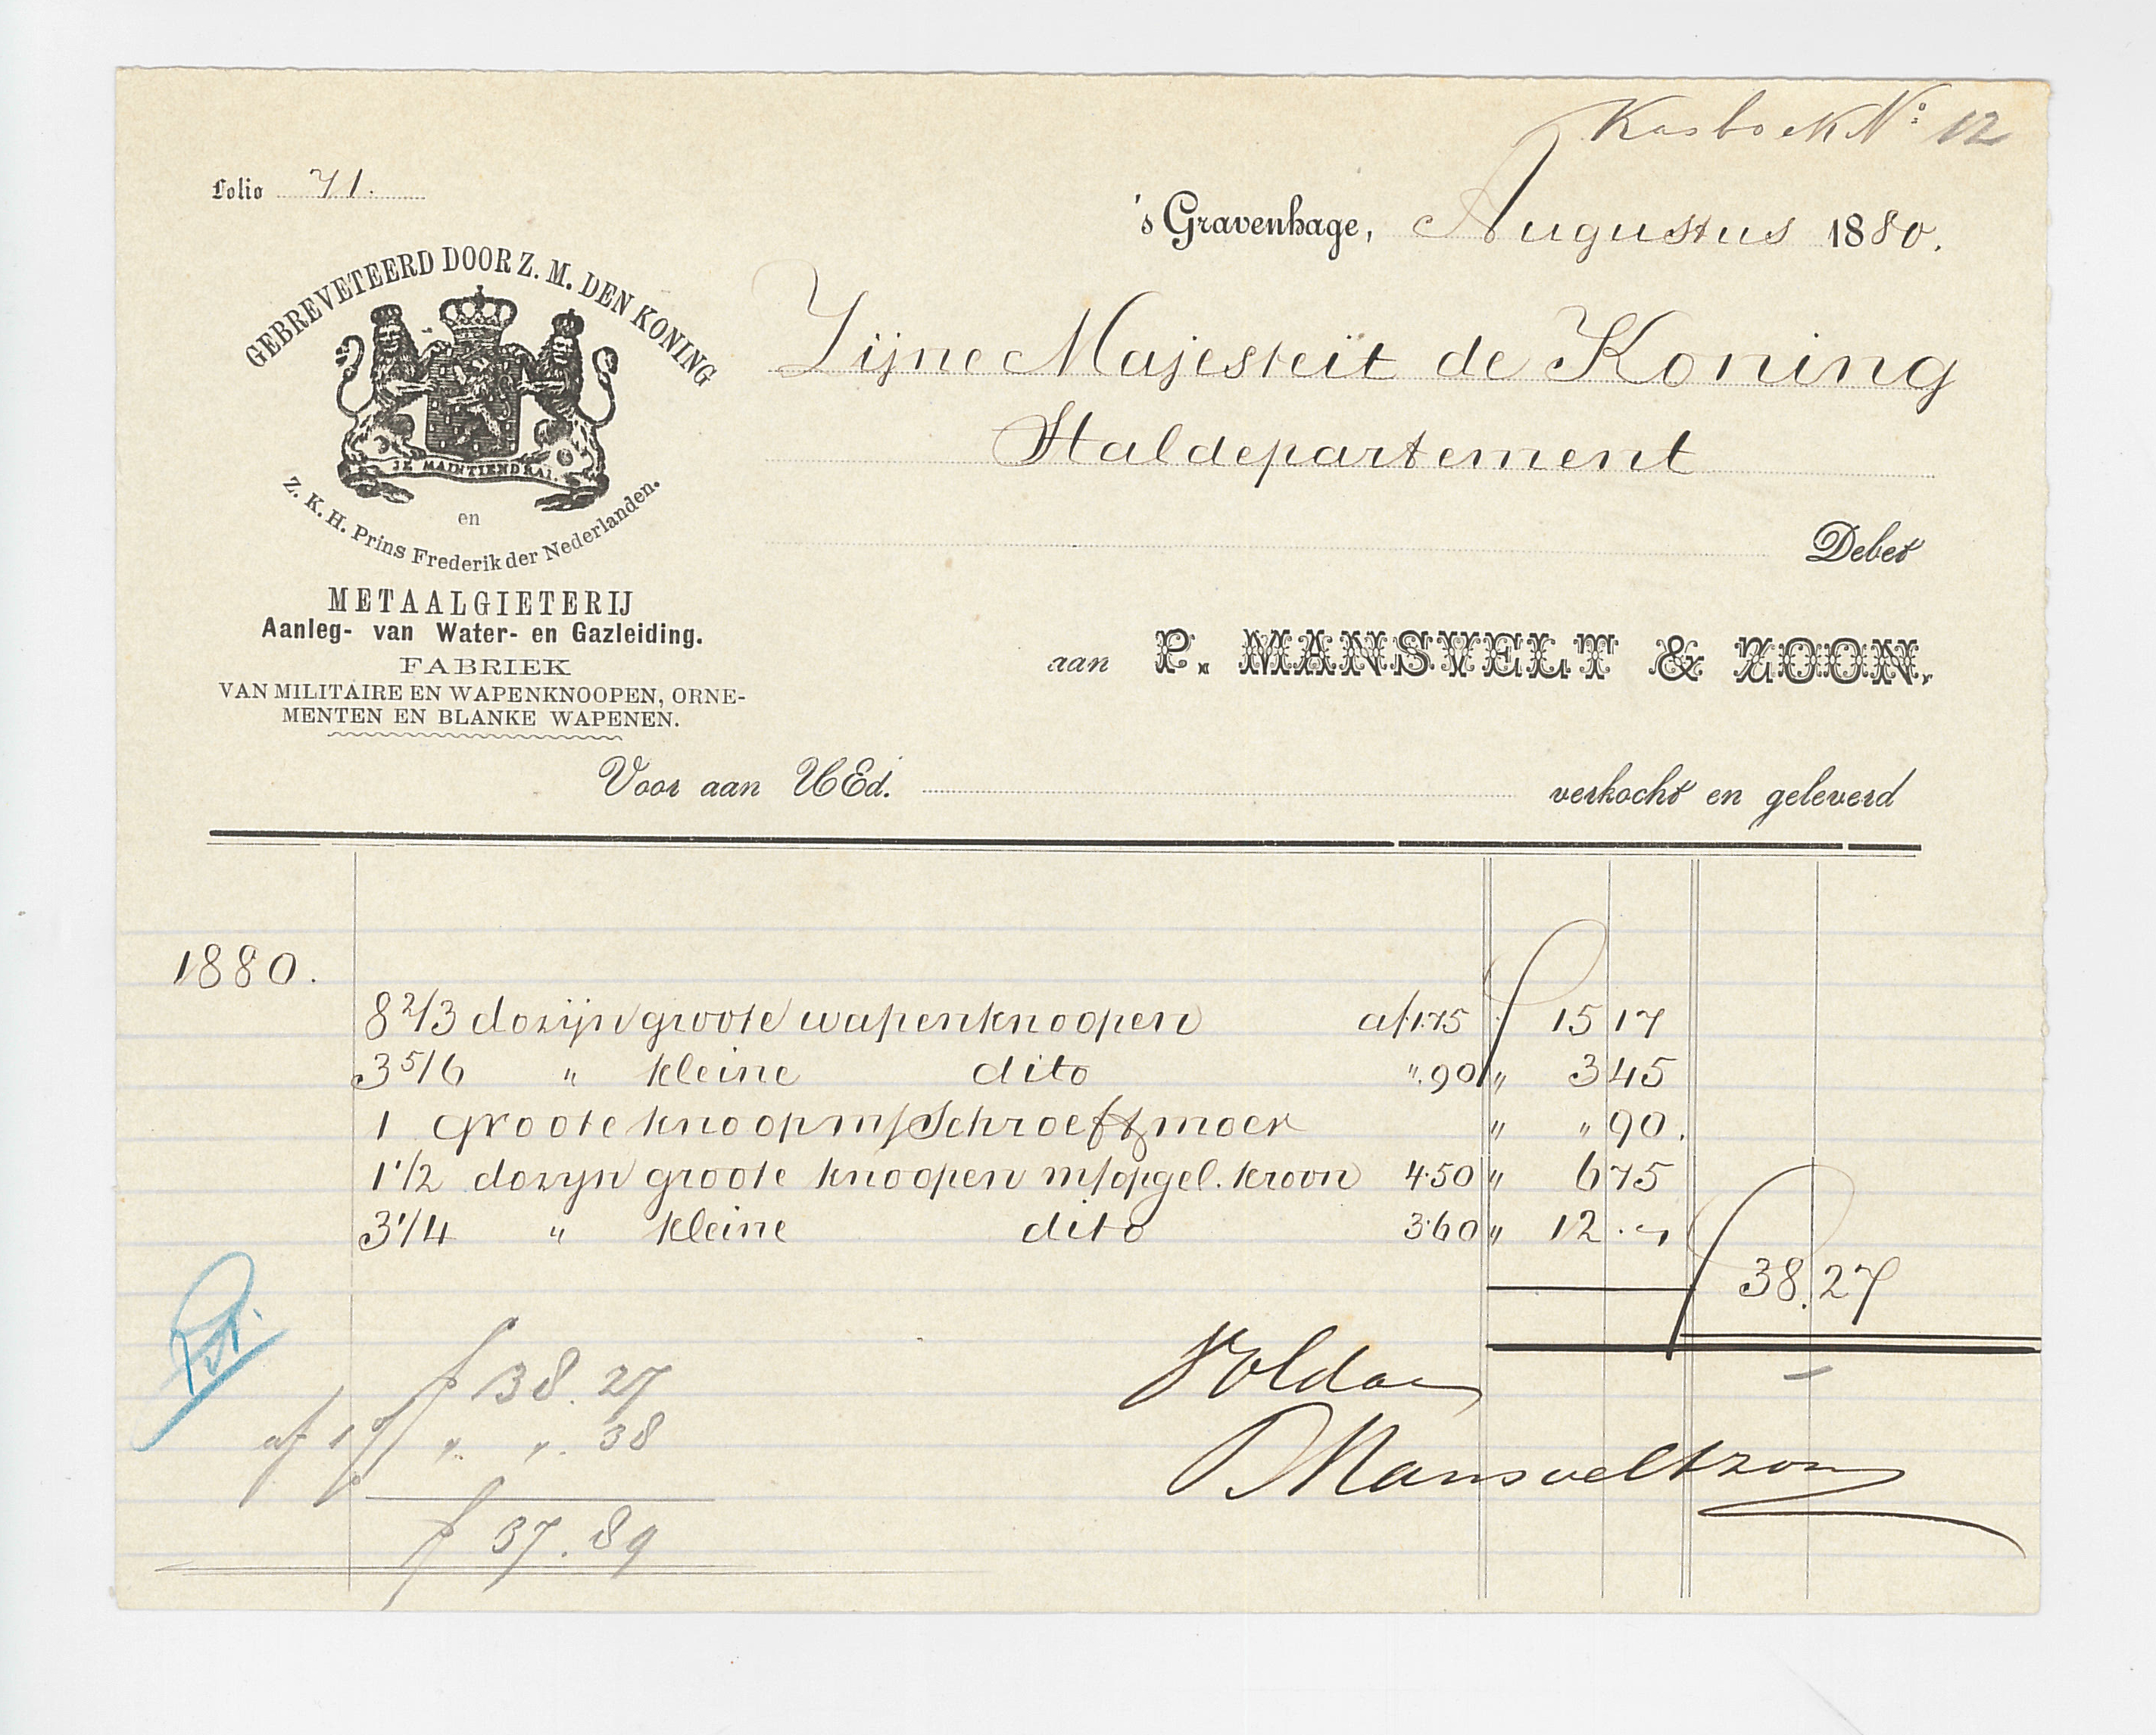 Kasboek No: 12
Folio 71.
's Gravenhage, Augustus 1880.
GEBREVETEERD DOOR Z. M. DEN KONING
JE MAINTIENDRAI
en
Z. K. H. Prins Frederik der Nederlanden.
Zijne Majesteit de Koning
Staldepartement
Debet
METAALGIETERIJ
Aanleg- van Water- en Gazleiding.
FABRIEK
VAN MILITAIRE EN WAPENKNOOPEN, ORNE-
MENTEN EN BLANKE WAPENEN.
aan P. MANSVELT & ZOON.
Voor aan UEd. verkocht en geleverd
1880.
8 2/3 dozijn groote wapenknoopen a f 1.75 f 15 17
3 5/6 " kleine dito ". 90 " 3 45
1 groote knoop m/ Schroef & moer " " 90.
1 1/2 dozyn groote knoopen m/ opgel. kroon 4.50 " 6 75
3 1/4 " kleine dito 3.60 " 12 . -
f 38.27
f 38.27
af 1 % " " . 38
f 37.89
Voldaan
P Mansvelt & zoon